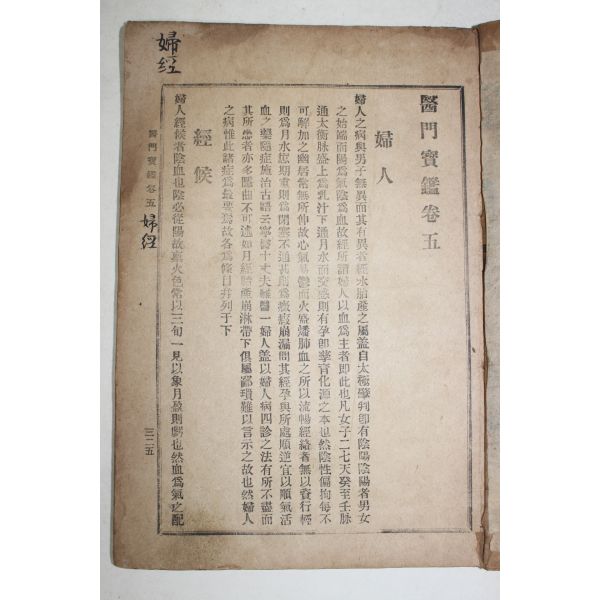 醫門寶鑑卷五
婦人
婦人之病與男子無異而其有異者經水胎產之屬盖自太極肇判卽有陰陽陰陽者男女
之始端而陽爲氣陰爲血故經所謂婦人以血爲主者卽此也凡女子二七天癸至壬脉
通太衝脉盛上爲乳汁下通月水而交感則有孕卽孳育化源之本也然陰性偏拘每不
可解加之幽居常無所伸故心氣易鬱而火盛燔肺血之所以流暢經絡者無以資行輕
則爲月水怠期重則爲閉塞不通甚則爲癥瘕崩漏問其經孕與所處順逆宜以順氣活
血之藥隨症施治古語云寧醫十丈夫難醫一婦人盖以婦人病四診之法有所不盡而
其所患者亦多醫曲不可述如月經胎產崩淋帶下俱屬鄙瑣難以言示之故也然婦人
之病惟此諸症爲最要焉故各爲條目弁列于下
經候
婦人經候者陰血也陰必從陽故禀火色常以三旬一見以象月盈則虧也然血爲氣之配
醫門寶鑑卷五
婦經
三二五
婦経